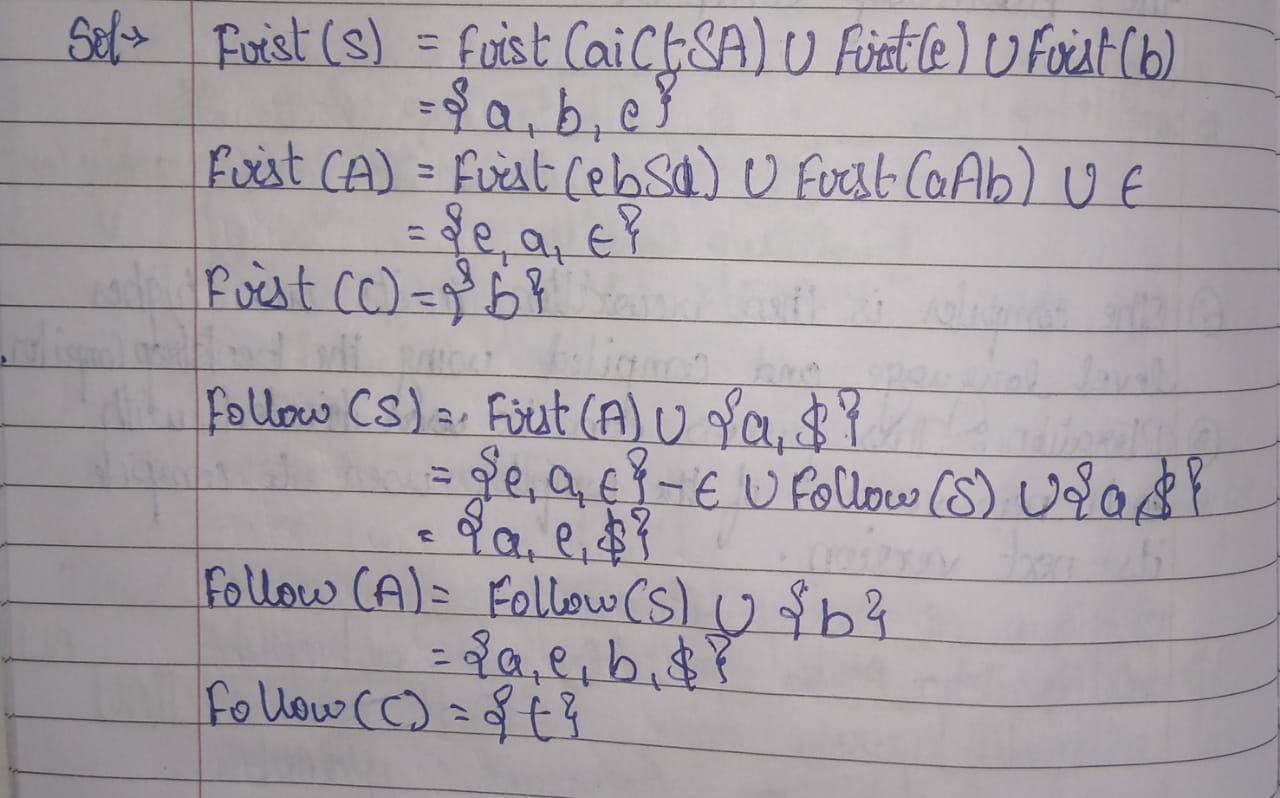 Sol→ First (S) = First (aiCtSA) ∪ First(e) ∪ First(b)
= {a, b, e}
First (A) = First (ebSa) ∪ First (aAb) ∪ ϵ
= {e, a, ϵ}
First (C) = {b}
Follow (S) = First (A) ∪ {a, $}
= {e, a, ϵ} - ϵ ∪ Follow (S) ∪ {a, $}
= {a, e, $}
Follow (A) = Follow (S) ∪ {b}
= {a, e, b, $}
Follow (C) = {t}